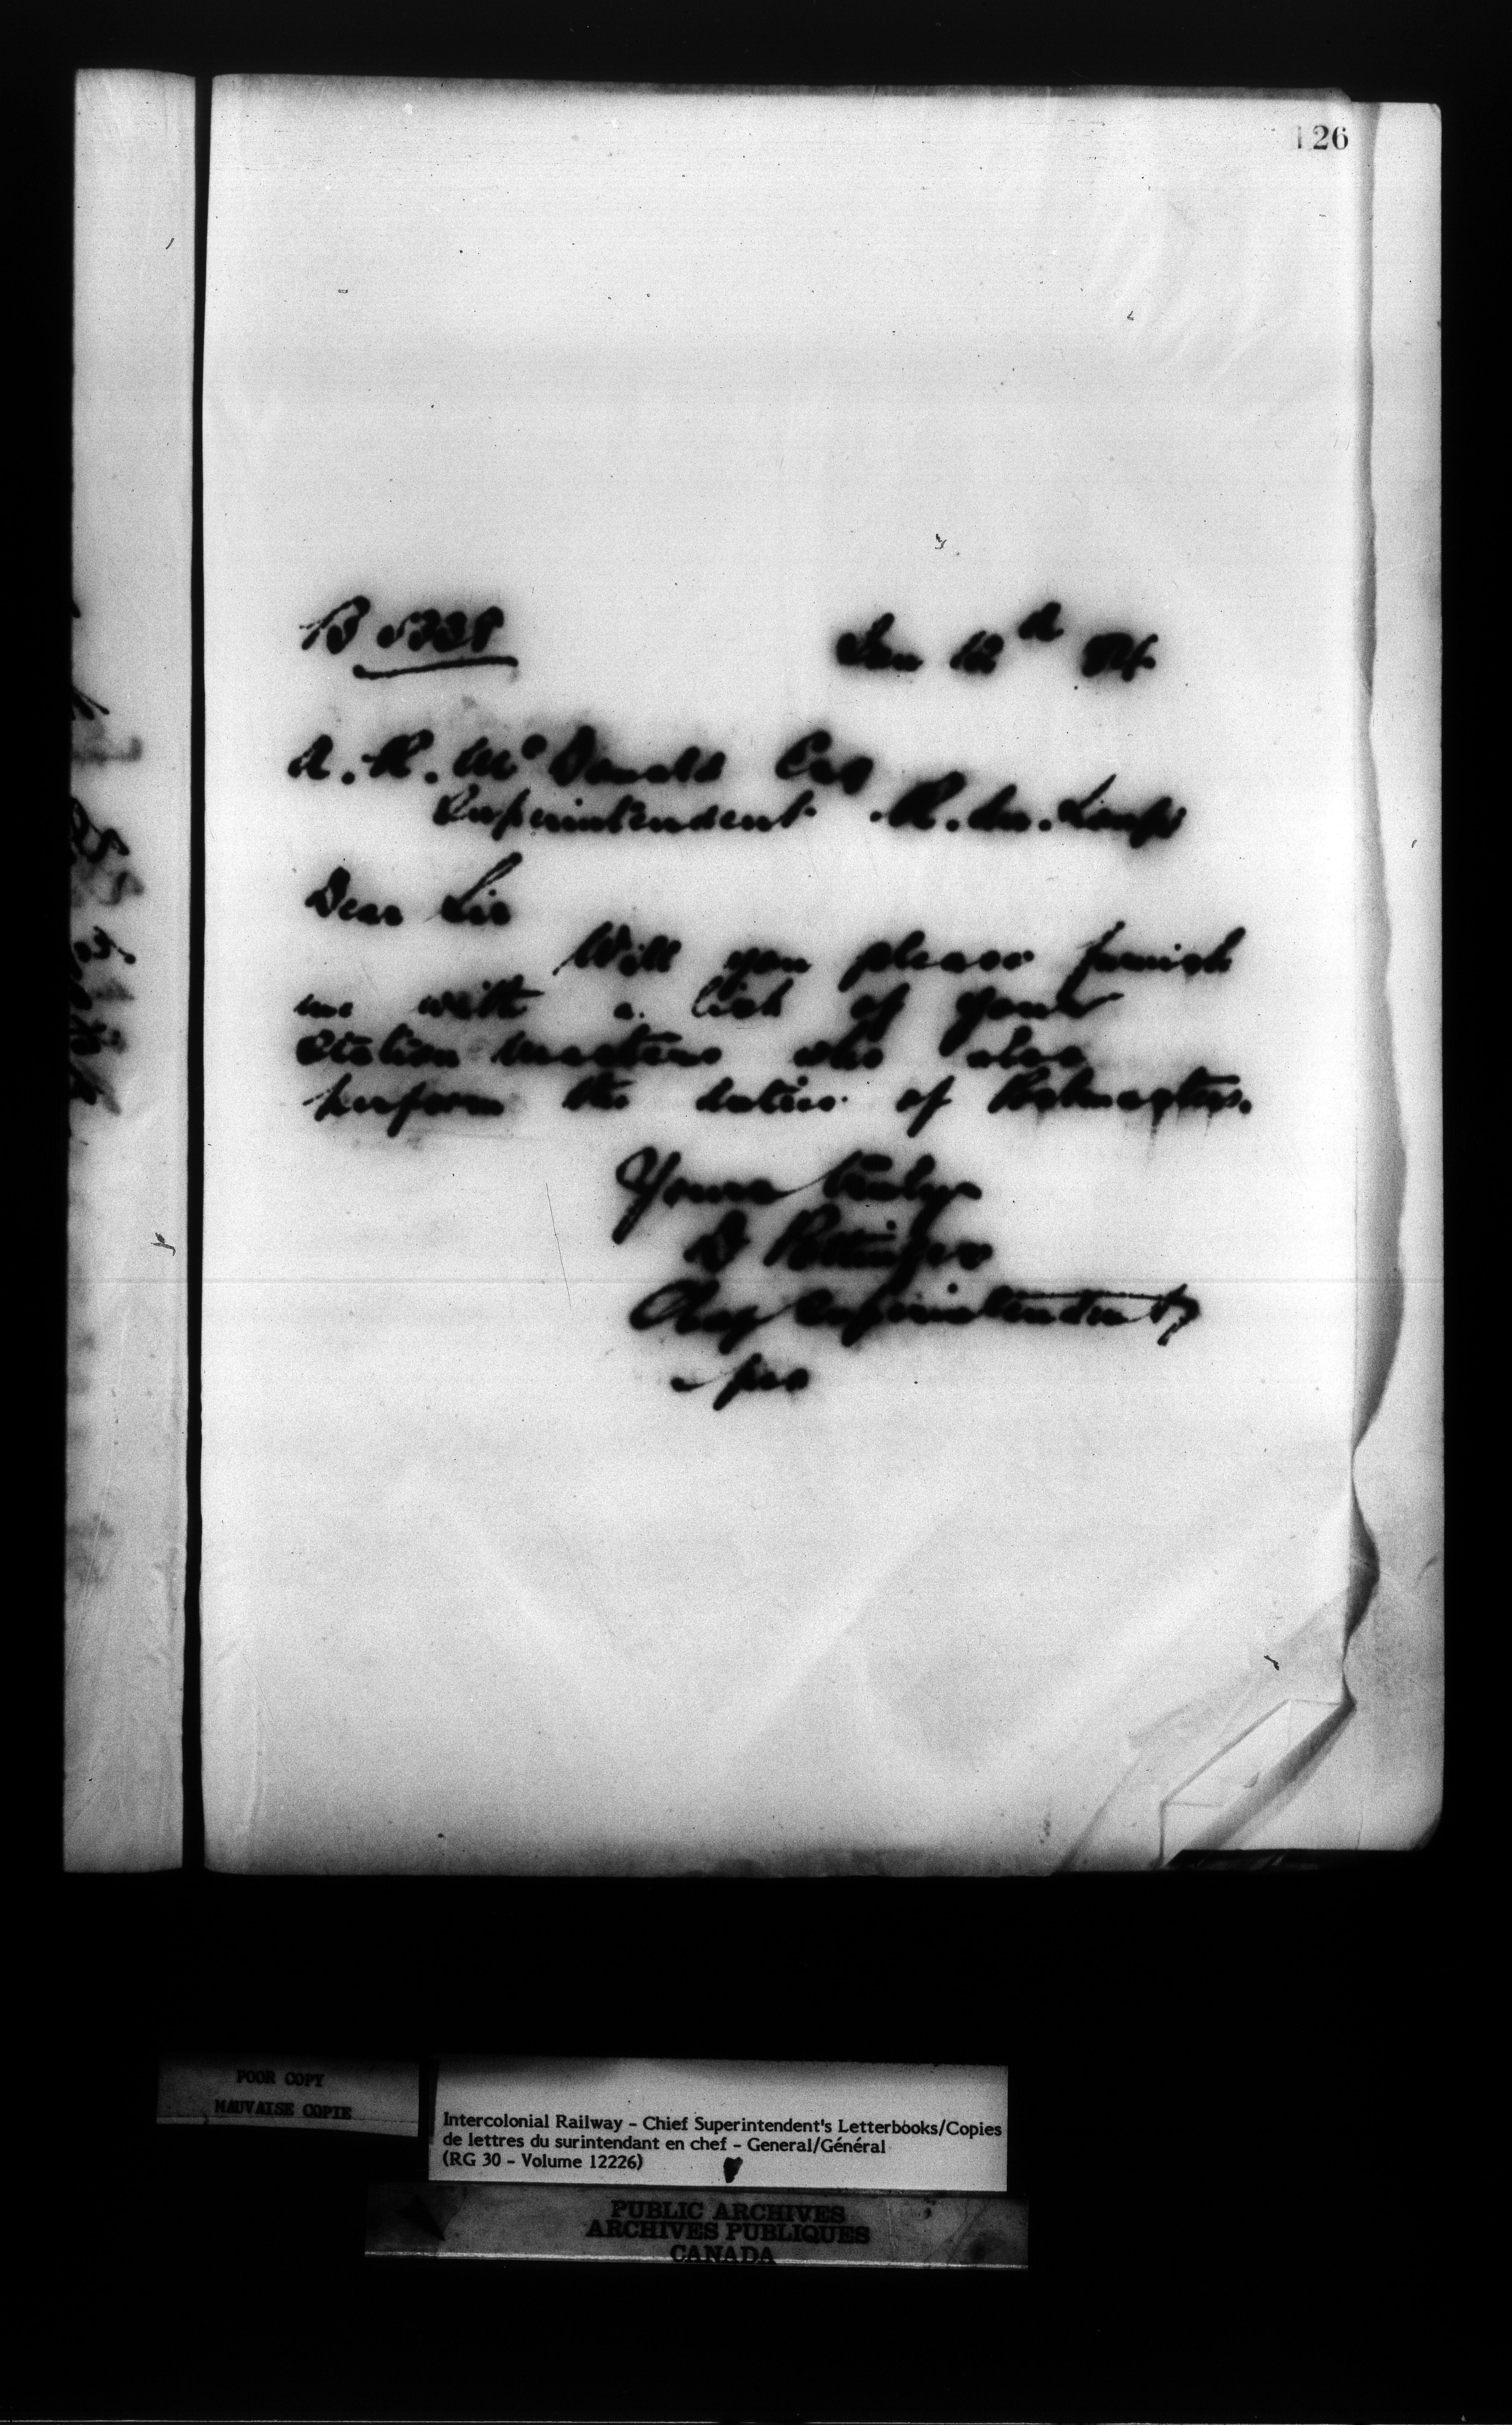 126
B 5328
Jan 12th 84
A. R. McDonald Esq
Superintendent R. du. Loup
Dear Sir
Will you please furnish
me with a list of your
Station Masters who also
perform the duties of Postmasters.
Yours truly
D Pottinger
Superintendent
per
POOR COPY
MAUVAISE COPIE
Intercolonial Railway - Chief Superintendent's Letterbooks/Copies
de lettres du surintendant en chef - General/Général
(RG 30 - Volume 12226)
PUBLIC ARCHIVES
ARCHIVES PUBLIQUES
CANADA